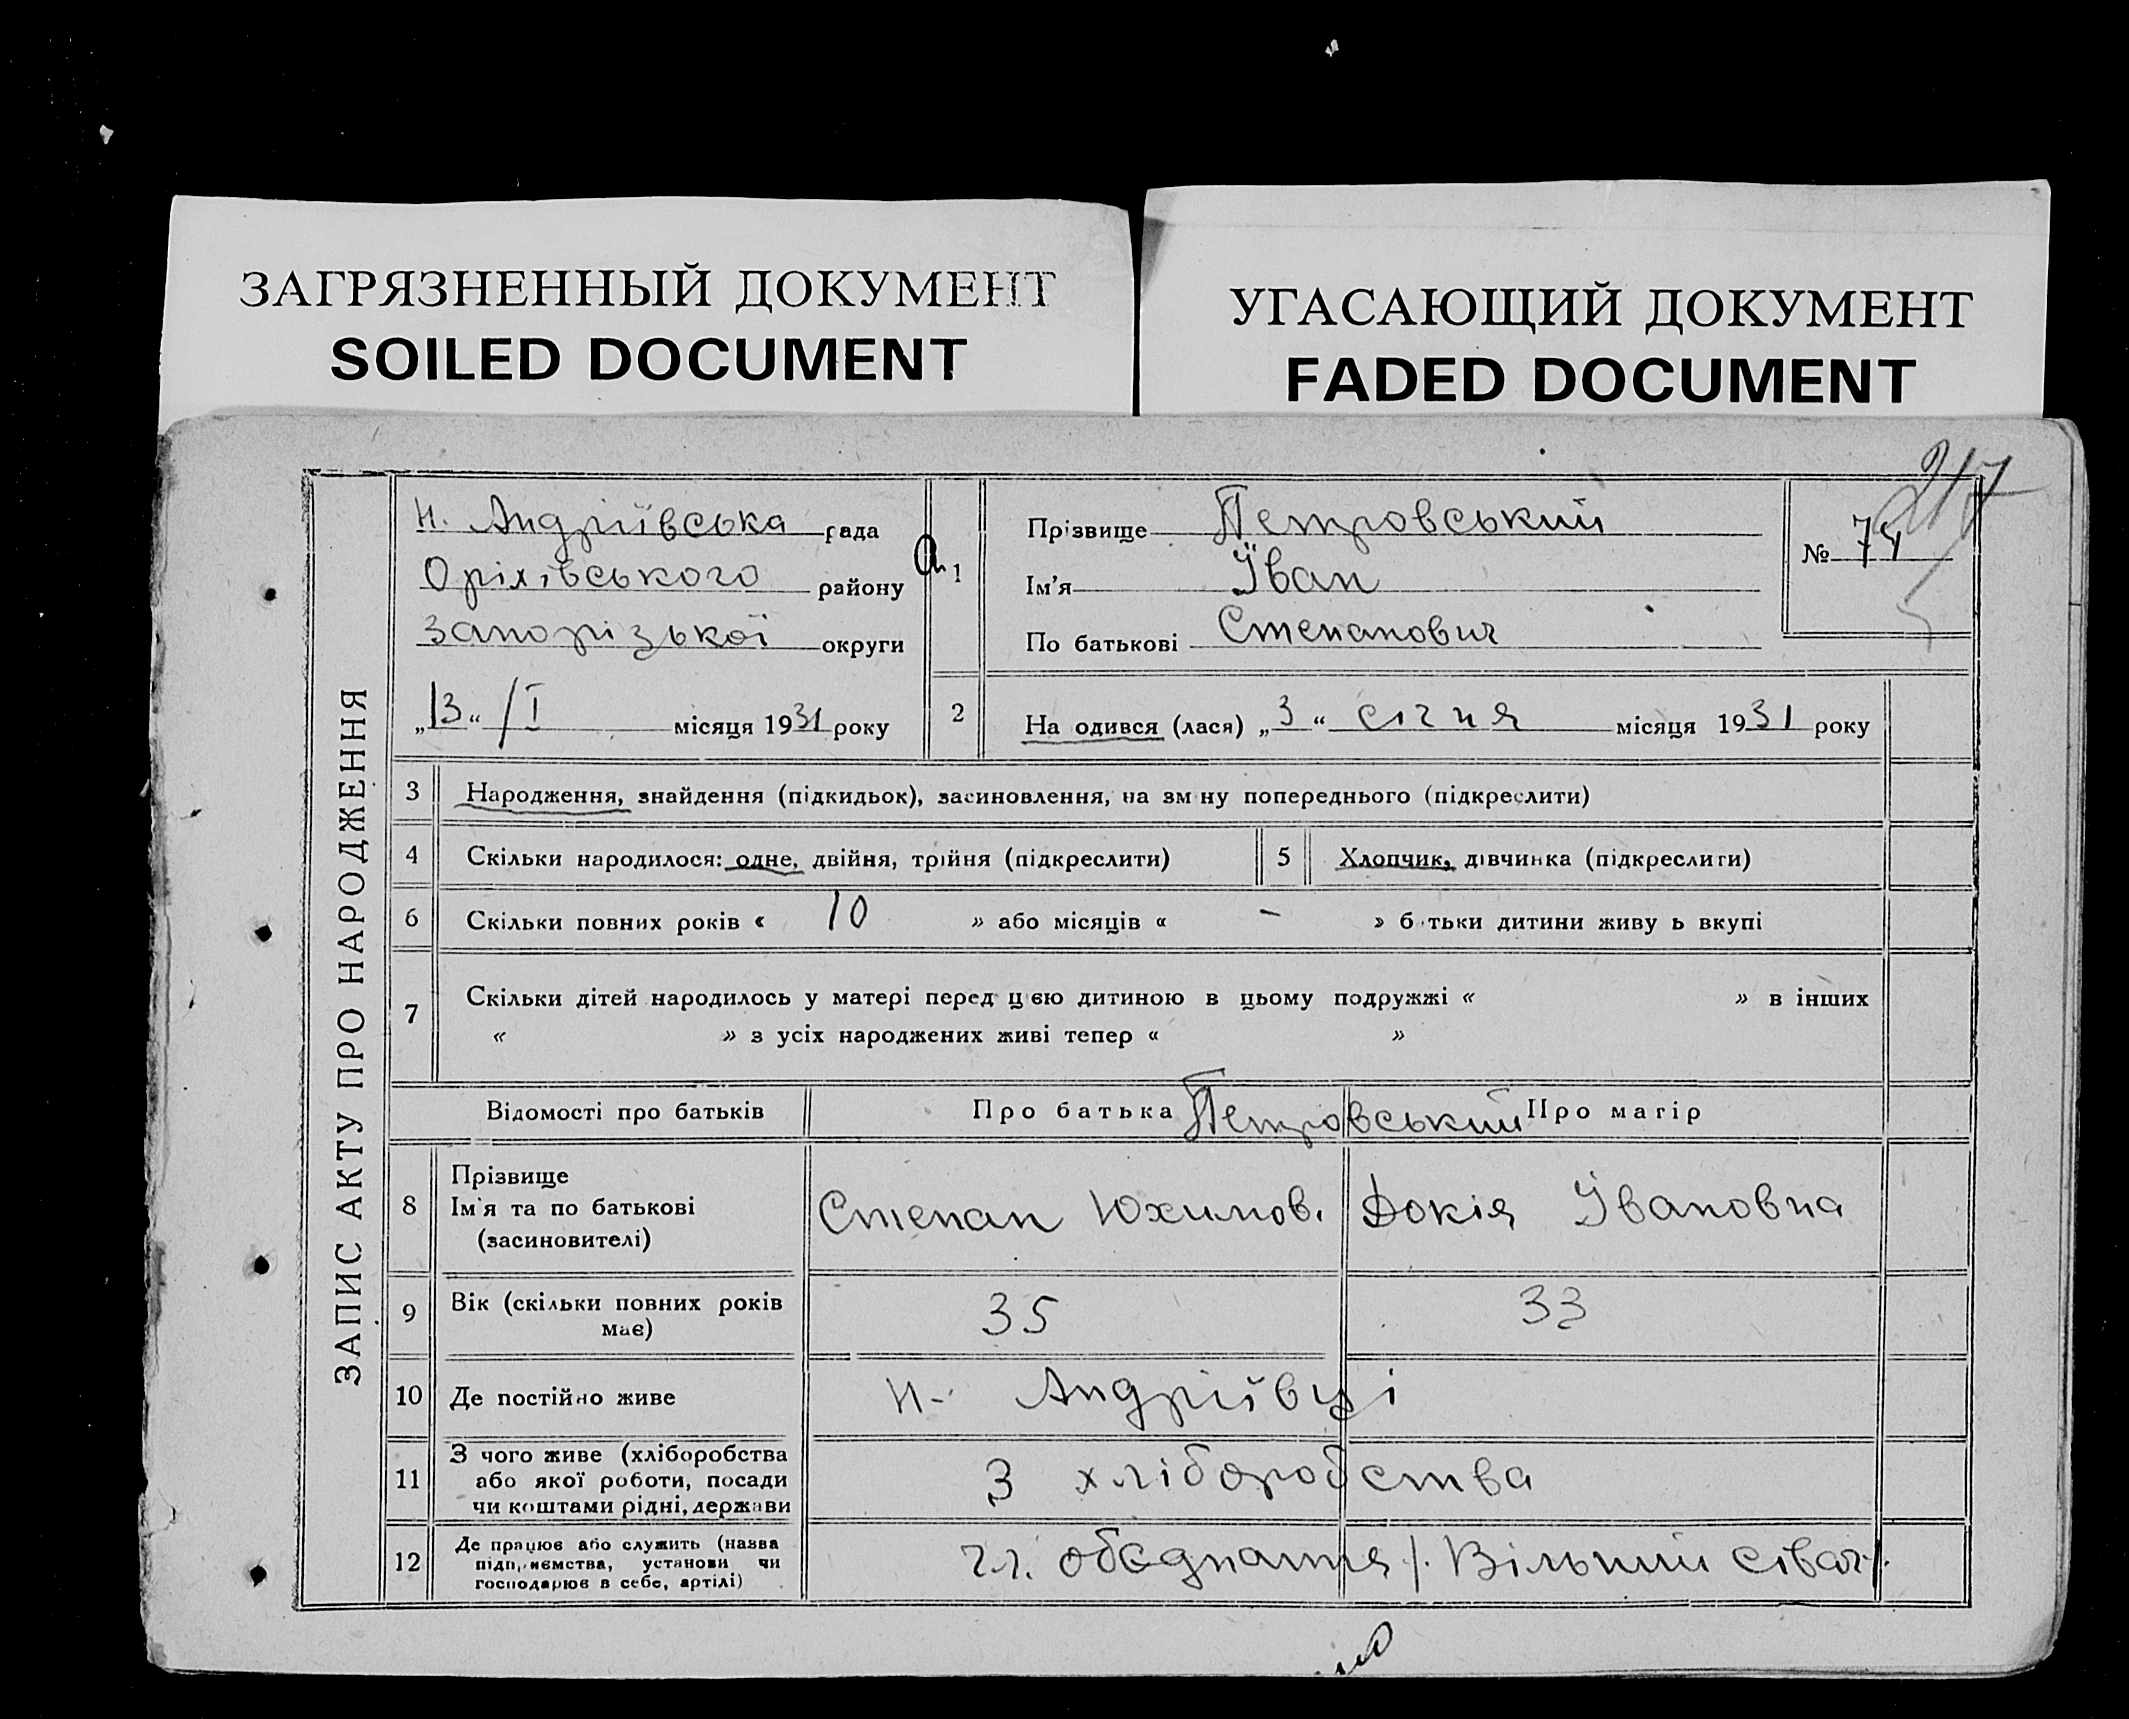 ЗАГРЯЗНЕННЫЙ ДОКУМЕНТ
SOILED DOCUMENT
УГАСАЮЩИЙ ДОКУМЕНТ
FADED DOCUMENT
217
ЗАПИС АКТУ ПРО НАРОДЖЕННЯ
Н. Андріївська рада
Оріхівського району
Запорізької округи
„13“ /I місяця 1931 року
1
Прізвище Петровський
Ім'я Іван
По батькові Степанович
№ 74
2 На одився (лася) „3“ січня місяця 1931 року
3 Народження, знайдення (підкидьок), засиновлення, на зм ну попереднього (підкреслити)
4 Скільки народилося: одне, двійня, трійня (підкреслити) 5 Хлопчик, дівчинка (підкреслити)
6 Скільки повних років « 10 » або місяців « - » б тьки дитини живу ь вкупі
7 Скільки дітей народилось у матері перед цією дитиною в цьому подружжі « » в інших
« » з усіх народжених живі тепер « »
Відомості про батьків Про батька Петровський Про матір
8 Прізвище
Ім'я та по батькові
(засиновителі)
Степан Юхимов. Докія Івановна
9 Вік (скільки повних років
має)
35 33
10 Де постійно живе Н- Андріївці
11 З чого живе (хліборобства
або якої роботи, посади
чи коштами рідні, держави
З хліборобства
12 Де працює або служить (назва
підприємства, установи чи
господарює в себе, артілі)
чл. обєднання /. Вільний сівач/.